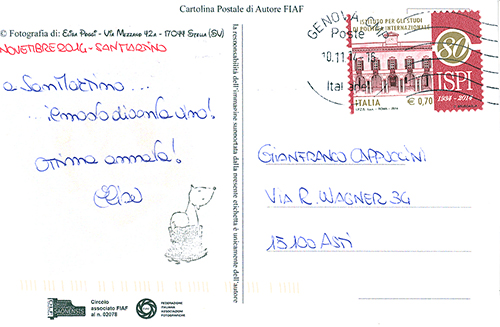 Cartolina Postale di Autore FIAF
© Fotografia di: Elisa Poggi - Via Mezzano 42A - 17044 Stella (SV)
11 NOVEMBRE 2014 - SAN MARTINO
A San Martino...
...il mosto diventa vino!
Ottima annata!
Elisa
la responsabilità dell'immagine stampata dalla presente etichetta è unicamente dell'autore
GENOVA
Poste
10.11.14
Italiane
ISTITUTO PER GLI STUDI
DI POLITICA INTERNAZIONALE
80
ISPI
1934 - 2014
ITALIA
€ 0,70
GIANFRANCO CAPPUCCINI
VIA R. WAGNER 34
15100 ASTI
Circolo
associato FIAF
al n. 02078
FIAF
FEDERAZIONE
ITALIANA
ASSOCIAZIONI
FOTOGRAFICHE